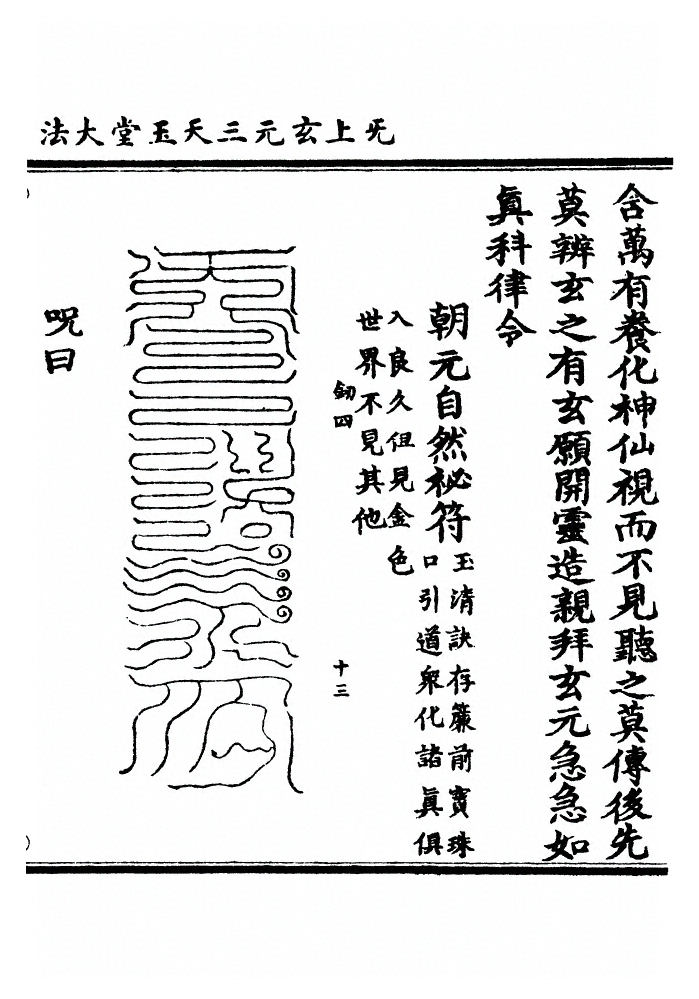 旡上玄元三天玉堂大法
含萬有養化神仙視而不見聽之莫傳後先
莫辨玄之有玄願開靈造親拜玄元急急如
眞科律令
朝元自然祕符
玉清訣存簾前寶珠
口引道衆化諸眞俱
入良久但見金色
世界不見其他
釼四
十三
呪曰